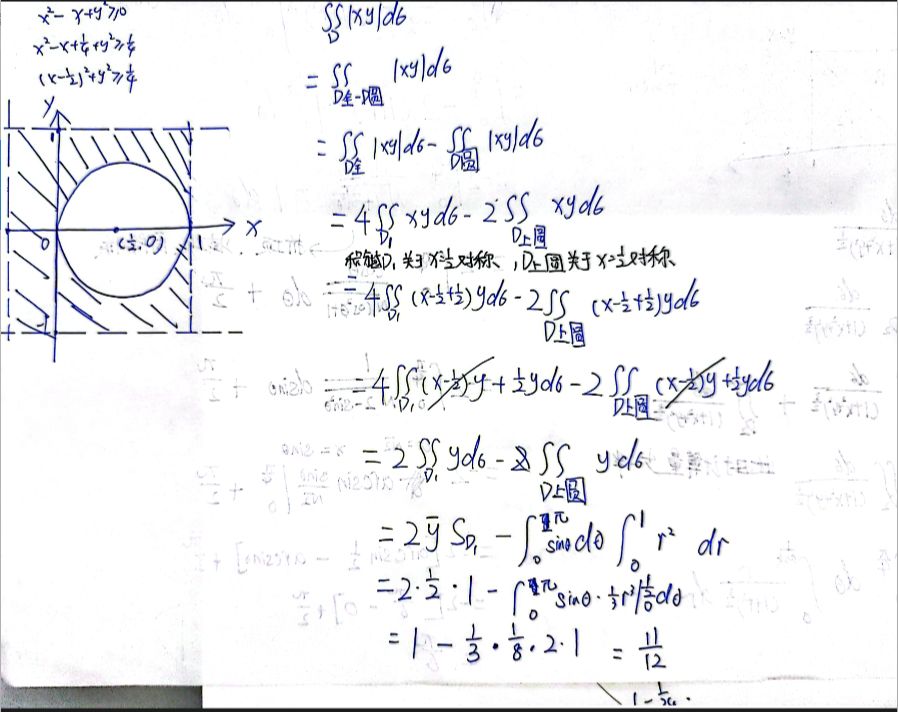 x²-x+y²≥0
x²-x+1/4+y²≥1/4
(x-1/2)²+y²≥1/4
y
1
0
(1/2,0)
1
x
-1
∬_D |xy|dσ
= ∬_{D全-D圆} |xy|dσ
= ∬_{D全} |xy|dσ - ∬_{D圆} |xy|dσ
= 4∬_{D₁} xydσ - 2∬_{D上圆} xydσ
积分域D₁关于x=1/2对称,D上圆关于x=1/2对称
= 4∬_{D₁} (x-1/2+1/2)ydσ - 2∬_{D上圆} (x-1/2+1/2)ydσ
= 4∬_{D₁} (x-1/2)y+1/2ydσ - 2∬_{D上圆} (x-1/2)y+1/2ydσ
= 2∬_{D₁} ydσ - ∬_{D上圆} ydσ
= 2ȳ S_{D₁} - ∫₀^π sinθdθ ∫₀^1 r² dr
= 2·1/2·1 - ∫₀^π sinθ·1/3r³|₀^{1/2}dθ
= 1 - 1/3·1/8·2·1 = 11/12